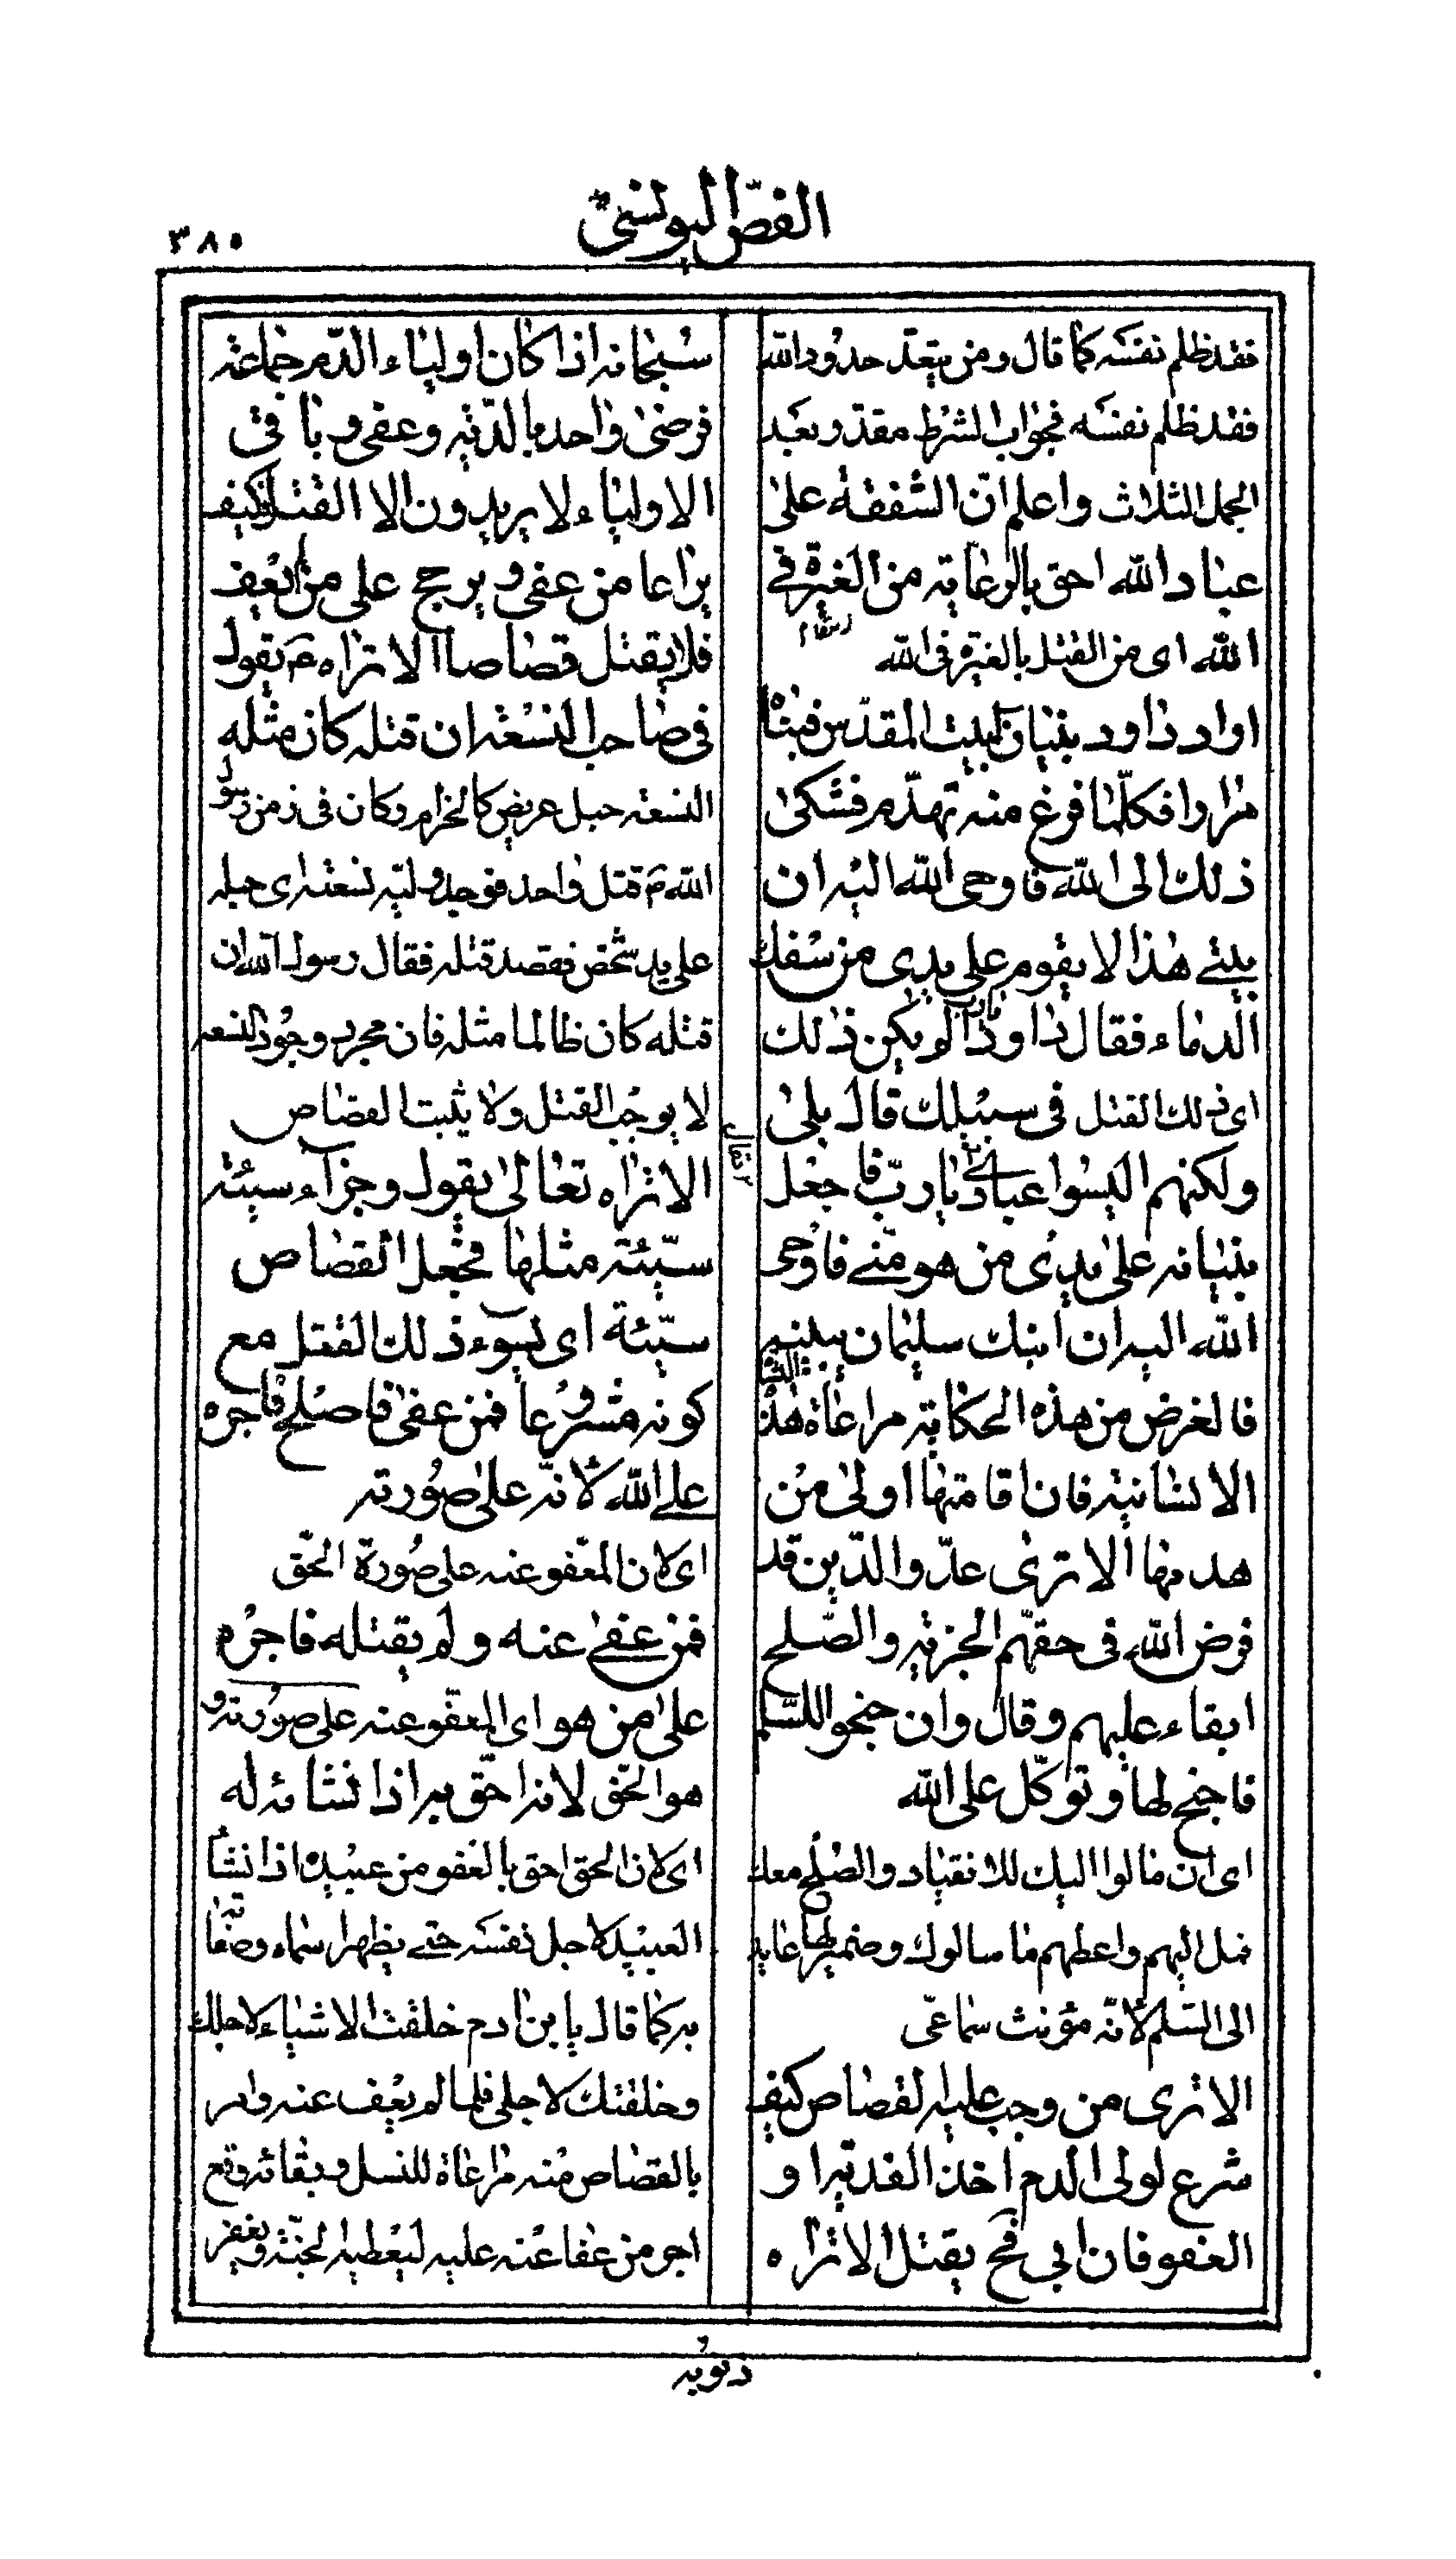 الفصّ اليونسىّ
٣٨٥
فقد ظلم نفسه كما قال ومن يتعدّ حدود الله
فقد ظلم نفسه فجواب الشرط مقدّر وبعيد
الجمل الثلاث واعلم انّ الشفقة على
عباد الله احق بالرعاية من الغيرة فى
الله اى من القتل بالغيرة فى الله
اراد داود بنيان البيت المقدّس فبناه
مرارا فكلّما فرغ منه تهدّم فشكى
ذلك الى الله فاوحى الله اليه ان
بيتى هذا لا يقوم على يدى من سفك
الدماء فقال داود يا رب الم يكن ذلك
اى ذلك القتل فى سبيلك قال بلى
ولكنهم اليسوا عبادى يا ربّ فاجعل
بنيانه على يدى من هو منّى فاوحى
الله اليه ان ابنك سليمان يبنيه
فالغرض من هذه الحكاية مراعاة هذه النشاة
الانسانية فان اقامتها اولى من
هدمها الا ترى عدّو الدّين قد
فرض الله فى حقهم الجزية والصّلح
ابقاء عليهم وقال وان جنحوا للسّلم
فاجنح لها وتوكّل على الله
اى ان مالوا اليك للانقياد والصّلح معك
فمل اليهم واعطهم ما سالوك وضمير لها عايد
الى السّلم لانّه مؤنث سماعّى
الا ترى من وجب عليه القصاص كيف
شرع لولى الدم اخذ الفدية او
العفو فان ابى فح يقتل الا تراه
سبحانه اذا كان اولياء الدّم جماعة
فرضى واحد بالدّية وعفى و باقى
الاولياء لا يريدون الا القتل كيف
يراعا من عفى و يرجح على من لم يعف
فلا يقتل قصاصا الا تراه ع يقول
فى صاحب النسعة ان قتله كان مثله
النسعة حبل عريض كالخرام وكان فى زمن رسول
الله ص قتل واحد فوجد وليّه نسعته اى حبله
على يد شخص فقصد قتله فقال رسول الله ان
قتله كان ظالما مثله فان مجرد وجود النسعه
لا يوجب القتل ولا يثبت القصاص
الا تراه تعالى يقول وجزآء سيئة
سيّئة مثلها فجعل القصاص
سيّئة اى يسوء ذلك الفعل مع
كونه مشروعا فمن عفى فاصلح فاجره
على الله لانّه على صورته
اى لان المعّفو عنه على صورة الحقّ
فمن عفى عنه ولم يقتله فاجره
على من هو اى المعفّو عنه على صورته و
هو الحّق لانه احّق به اذا نشا نه له
اى لان الحق احق بالعفو من عبيده اذ انشأ
العبيد لاجل نفسه حتى يظهر اسماءه وصفاته
به كما قال يا بن ادم خلقت الاشياء لاجلك
وخلقتك لاجلى فلما لم يعف عنه وامر
بالقصاص منه مراعاة للنسل و بقائه وقع
اجر من عفا عنه عليه ليعطيه الجنّة ويغفر
ذنوبه